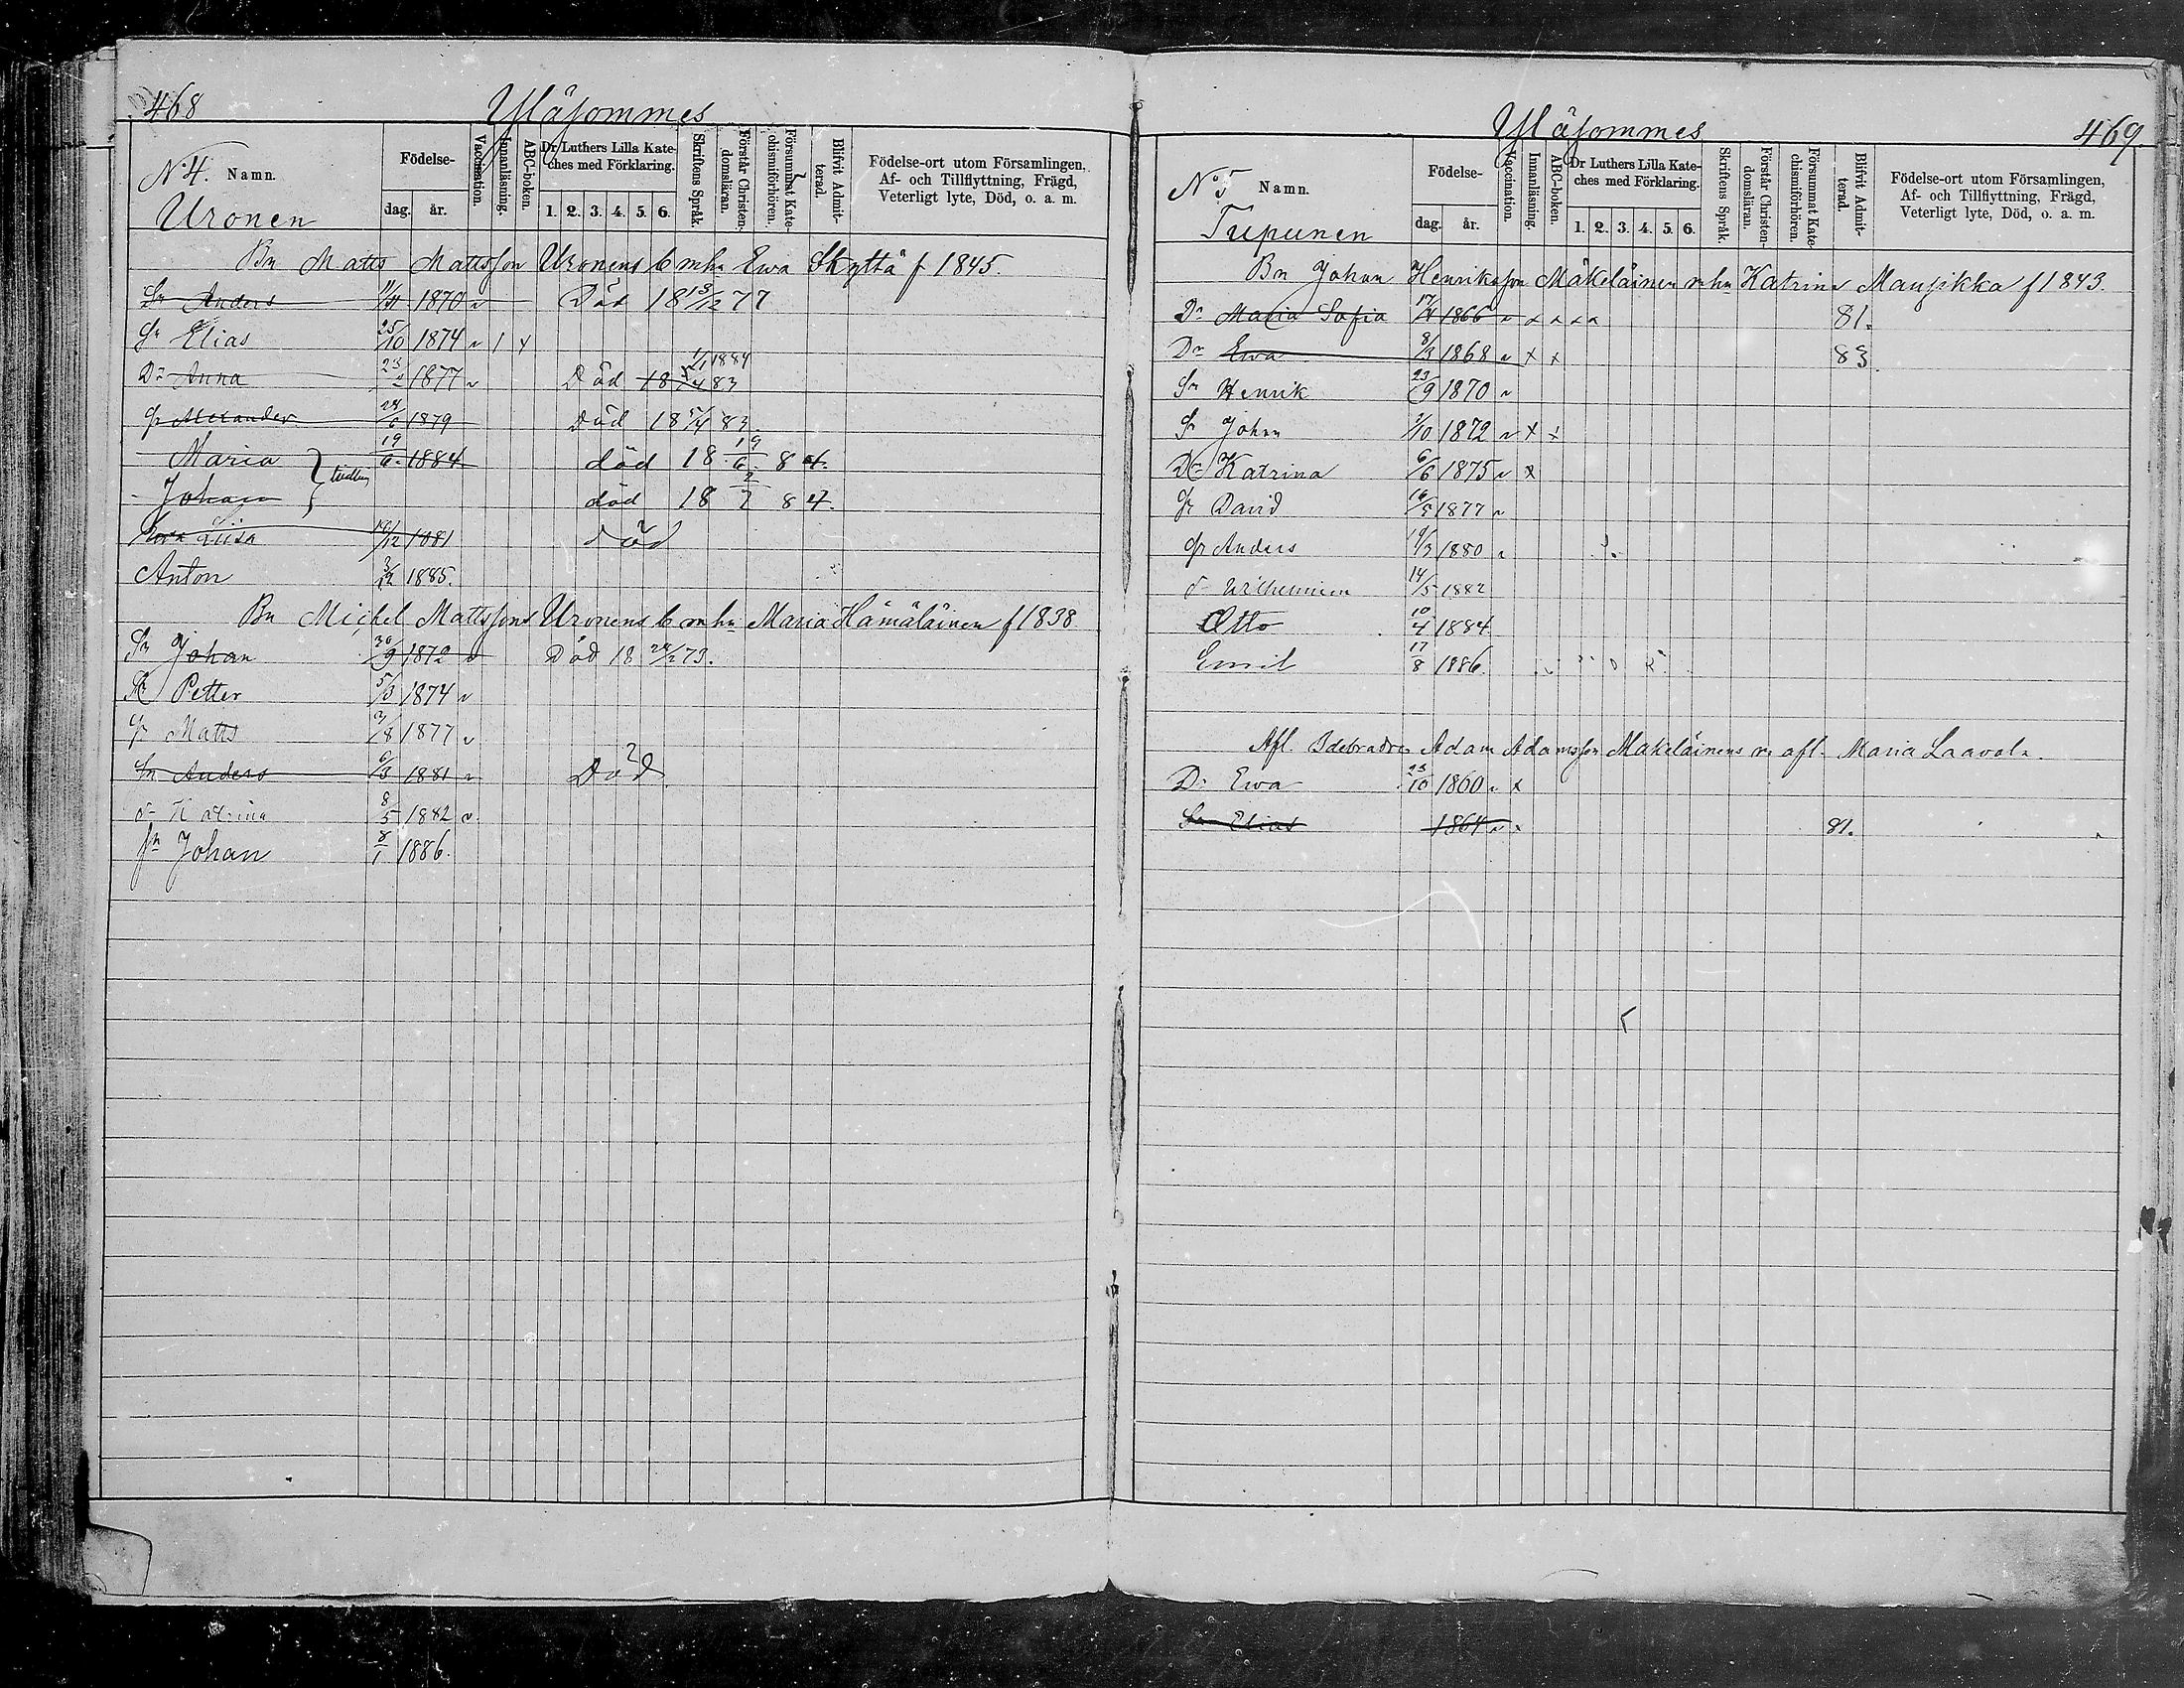 468
Yläsommes
N:o 4. Namn.
Födelse-
dag. år.
Vaccination.
Innanläsning.
ABC-boken.
Dr Luthers Lilla Kate-
ches med Förklaring.
1. 2. 3. 4. 5. 6.
Skriftens Språk.
Förstår Christen-
domsläran.
Försummat Kate-
chismiförhören.
Blifvit Admit-
terad.
Födelse-ort utom Församlingen,
Af- och Tillflyttning, Frägd,
Veterligt lyte, Död, o. a. m.
Uronen
Bn Matts Mattsson Uronens b mhu Ewa Skyttä f 1845.
Sn Anders 1870 Död 18 13/12 77
Sn Elias 25/10 1874
Dr Anna 23/2 1877 Död 18 5/4 83 1/1 1884
Sn Alexander 1879 Död 18 5/4 83.
Maria 19/6 1884 död 18 19/6 84.
Johan död 18 2/7 84.
Liisa 1881 död
Anton 3/12 1885.
Bn Michel Mattssons Uronens b mhu Maria Hämäläinen f 1838
Sn Johan 30/9 1872 Död 18 24/2 73.
Sn Petter 5/3 1874
Sn Matts 3/8 1877
Sn Anders 6/3 1881 Död
d- Katrina 8/5 1882
sn Johan 8/1 1886.
Yläsommes
469.
N:o 5 Namn.
Födelse-
dag. år.
Vaccination.
Innanläsning.
ABC-boken.
Dr Luthers Lilla Kate-
ches med Förklaring.
1. 2. 3. 4. 5. 6.
Skriftens Språk.
Förstår Christen-
domsläran.
Försummat Kate-
chismiförhören.
Blifvit Admit-
terad.
Födelse-ort utom Församlingen,
Af- och Tillflyttning, Frägd,
Veterligt lyte, Död, o. a. m.
Tupunen
Bn Johan Henriksson Mäkeläinen mhu Katrina Maujikka f 1843.
Dr Maria Sofia 17/4 1866 81.
Dr Ewa 8/3 1868 83
Sn Henrik 23/9 1870
Sn Johan 1872
Dr Katrina 6/6 1875
Sn David 16/5 1877
Sn Anders 1880
d- Wilhelmina 14/5 1882
Otto 10/4 1884.
Emil 17/8 1886.
Afl. Adam Adamsson Makeläinens o. afl. Maria Laavola.
Dr Ewa 23/10 1860
Sn Elias 1864 81.